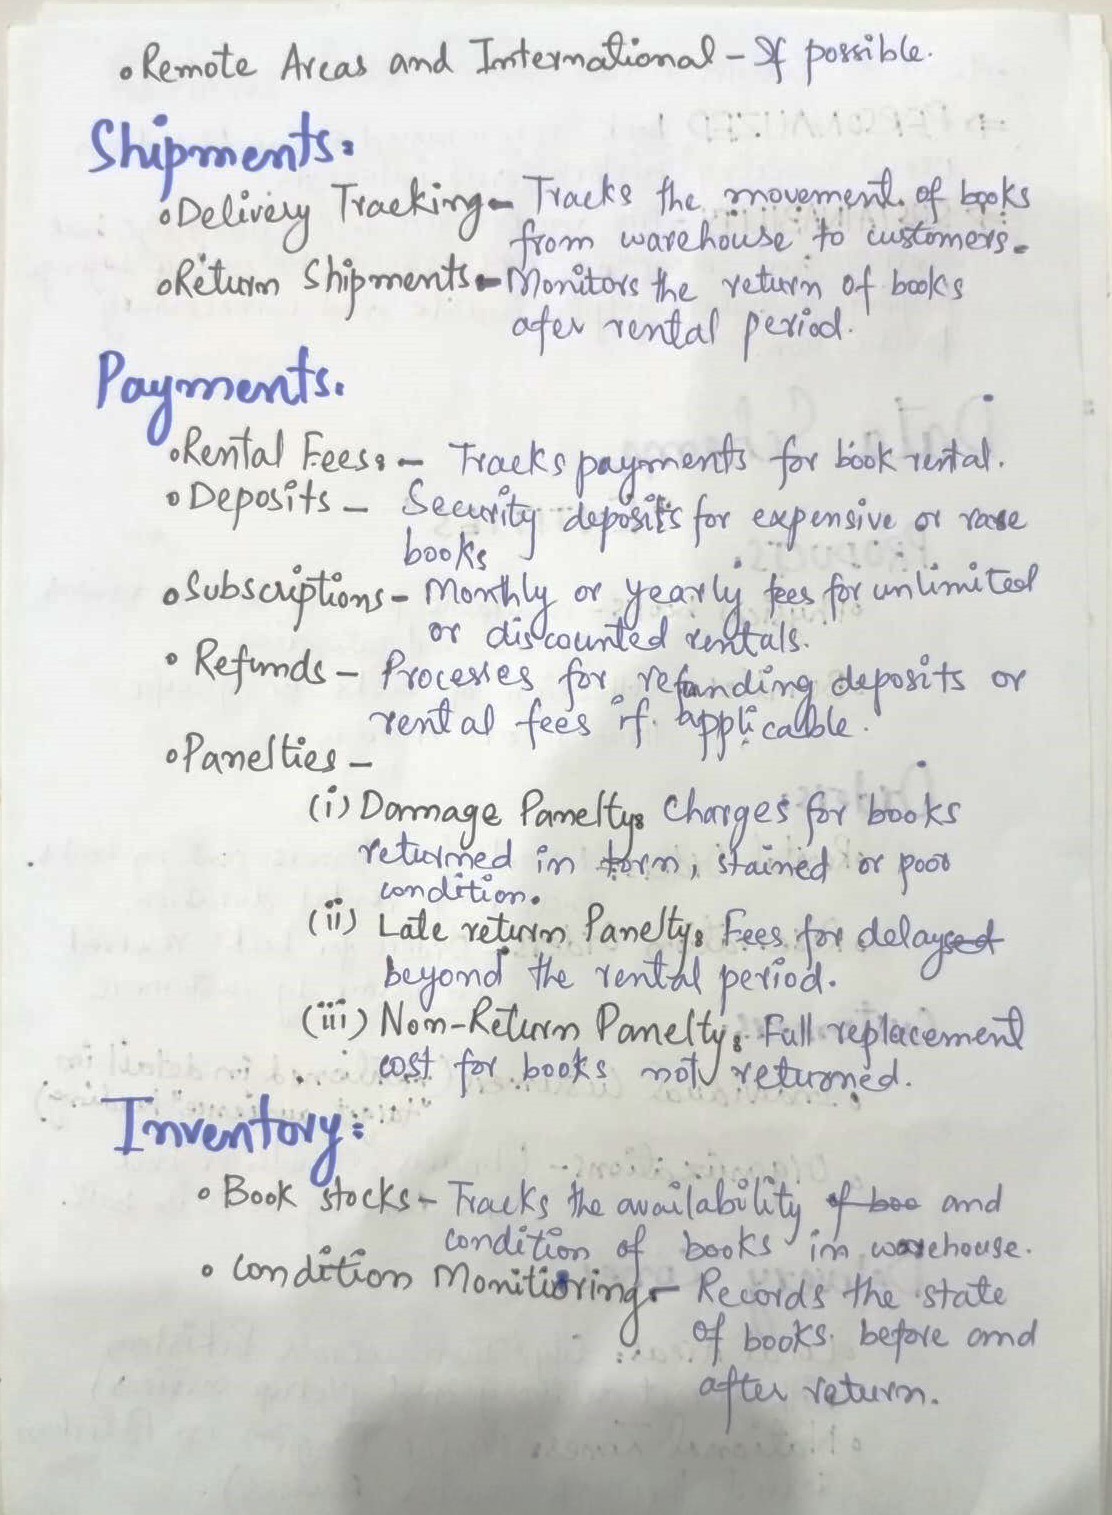 • Remote Areas and International - If possible.
Shipments:
• Delivery Tracking - Tracks the movement of books
from warehouse to customers.
• Return Shipments - Monitors the return of books
afer rental period.
Payments:
• Rental Fees: - Tracks payments for book rental.
• Deposits - Security deposits for expensive or rare
books
• Subscriptions - Monthly or yearly fees for unlimited
or discounted rentals.
• Refunds - Processes for refunding deposits or
rental fees if applicable.
• Panelties -
(i) Damage Panelty: Charges for books
returned in torn, stained or poor
condition.
(ii) Late return Panelty: Fees for delayed
beyond the rental period.
(iii) Non-Return Panelty: Full replacement
cost for books not returned.
Inventory:
• Book stocks - Tracks the availability of boo and
condition of books in warehouse.
• Condition Monitioring - Records the state
of books before and
after return.